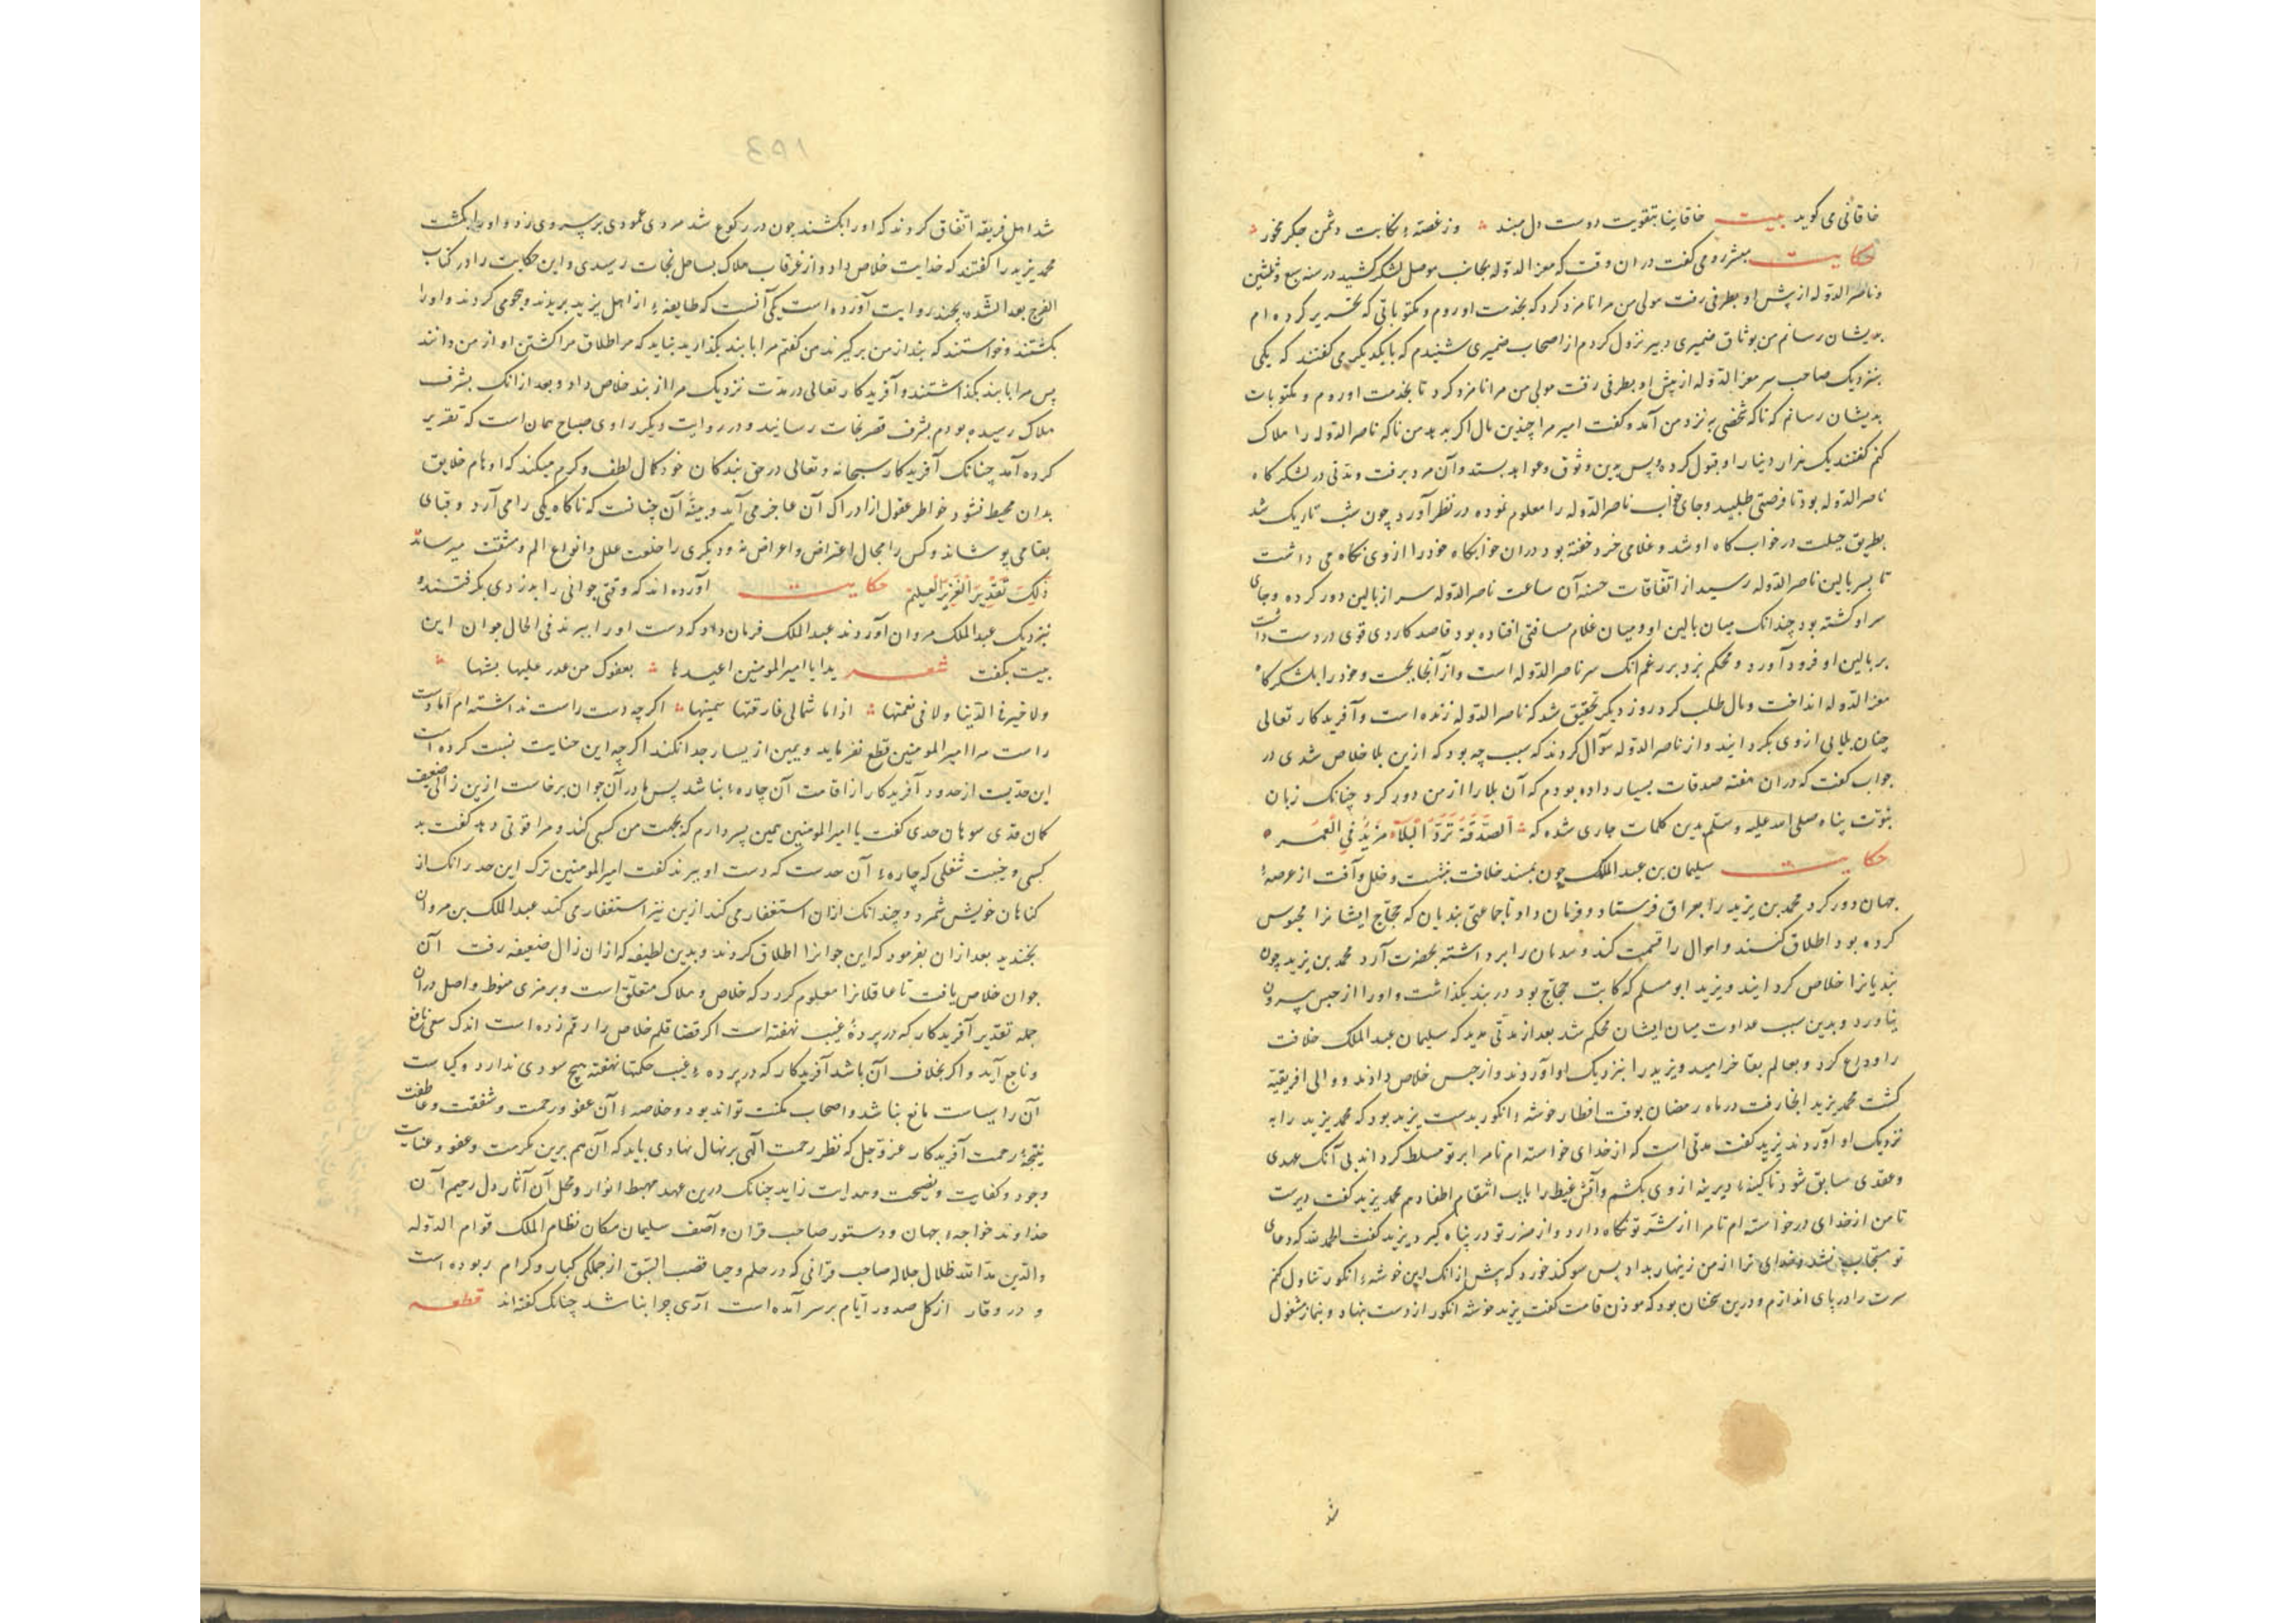 خاقانی می کوید بیت خاقاینا بتقویت دوست دل مبند وز غصتهٔ نکایت دشمن جکر مخور
حکایت معشر رومی کفت در ان وقت که معز الدوله بجانب موصل لشکر کشید در سنه سبع وثلثین
وناصر الدوله از پیش او بطرفی رفت مولی من مرا نامزد کرد که بخدمت او روم ومکتوباتی که تحریر کرده ام
بدیشان رسانم من بوثاق ضمیری دبیر نزول کردم از اصحاب ضمیری شنیدم که با یکدیکر می کفتند که یکی
بنزدیک صاحب سر معز الدوله از پیش او بطرفی رفت مولی من مرا نامزد کرد تا بخدمت او روم ومکتوبات
بدیشان رسانم که ناکه شخصی به نزد من آمد وکفت امیر مرا چندین مال اکر بدهد من ناکه ناصر الدوله را هلاک
کنم کفتند یک هزار دینار او قبول کرده پس بدین وثوق وعواید بستد وآن مرد برفت ومدتی در لشکر کاه
ناصر الدوله بود تا فرصتی طلبید وجای خواب ناصر الدوله را معلوم نموده در نظر آورد چون شب تاریک شد
بطریق حیلت در خواب کاه او شد وغلامی خرد خفته بود در ان خوابکاه خود را از وی نکاه می داشت
تا بسر بالین ناصر الدوله رسید از اتفاقات حسنه آن ساعت ناصر الدوله سر از بالین دور کرده وجای
سر او کشته بود چندانک میان بالین او ومیان غلام مسافتی افتاده بود قاصد کاردی قوی در دست داشت
بر بالین او فرود آورد ومحکم بزد بر زعم انک سر ناصر الدوله است واز آنجا بجست وخود را بلشکر کاه
معز الدوله انداخت ومال طلب کرد روز دیکر تحقیق شد که ناصر الدوله زنده است وآفرید کار تعالی
چنان بلایی از وی بکردانید واز ناصر الدوله سوآل کردند که سبب چه بود که ازین بلا خلاص شدی در
جواب کفت که در ان هفته صدقات بسیار داده بودم که آن بلا را از من دور کرد چنانک زبان
نبوت پناه صلی الله علیه وسلم بدین کلمات جاری شده که اَلصَّدَقَةُ تَرُدُّ الْبَلَآءَ وتَزِیْدُ فِی الْعُمْر
حکایت سلیمان بن عبد الملک چون بمسند خلافت بنشست وخلل وآفت از عرصهٔ
جهان دور کرد محمد بن یزید را بعراق فرستاد وفرمان داد تا جماعتی بندیان که حجاج ایشانرا محبوس
کرده بود اطلاق کنند واموال را قسمت کند ومدمان را برداشته بحضرت آرد محمد بن یزید چون
بندیانرا خلاص کردانید ویزید ابو مسلم که کاتب حجاج بود در بند بکذاشت واورا از حبس بیرون
نیاورد وبدین سبب عداوت میان ایشان محکم شد بعد از مدتی مدید که سلیمان عبد الملک خلافت
را وداع کرد وبعالم بقا خرامید ویزید را بنزدیک او آوردند واز حبس خلاص دادند ووالی افریقیه
کشت محمد یزید انجا رفت در ماه رمضان بوقت افطار خوشهٔ انکور بدست یزید بود که محمد یزید را به
نزدیک او آوردند یزید کفت مدتی است که از خدای خواسته ام تا مرا بر تو مسلط کرداند بی آنک عهدی
وعقدی سابق شود تا کینهٔ دیرینه از وی بکشم وآتش غیظ را بآب انتقام اطفا دهم محمد یزید کفت دیرست
تا من از خدای در خواسته ام تا مرا از شر تو نکاه دارد واز ضرر تو در پناه کیرد یزید کفت الحمد لله که دعای
تو مستجاب نشد وخدای ترا از من زینهار بداد پس سوکند خورد که پیش از انک این خوشهٔ انکور تناول کنم
سرت را در پای اندازم ودرین سخنان بود که موذن قامت کفت یزید خوشه انکور از دست بنهاد وبنماز مشغول
شد
شد اهل فریقه اتفاق کردند که اورا بکشند چون در رکوع شد مردی عمودی بر سر وی زد واورا بکشت
محمد یزید را کفتند که خدایت خلاص داد واز غرقاب هلاک بساحل نجات رسیدی واین حکایت را در کتاب
الفرج بعد الشده بچند روایت آورده است یکی آنست که طایفهٔ از اهل یزید بریدند وهجومی کردند واورا
بکشتند وخواستند که بند از من برکیرند من کفتم مرا با بند بکذارید نباید که مر اطلاق مرا کشتن او از من دانند
پس مرا با بند بکذاشتند وآفرید کار تعالی در مدت نزدیک مرا از بند خلاص داد وبعد از انک بشرف
هلاک رسیده بودم بشرف قصر نجات رسانید ودر روایت دیکر راوی صباح همان است که تقریر
کرده آمد چنانک آفرید کار سبحانه وتعالی در حق بندکان خود کمال لطف وکرم میکند که اوهام خلایق
بدان محیط نشود خواطر عقول از ادراک آن عاجز می آید وبینهٔ آن چنانست که ناکاه یکی را می آرد وقبای
بقا می پوشاند وکس را مجال اعتراض واعراض نه ودیکری را خلعت علل وانواع الم ومشقت میرساند
ذٰلِکَ تَقْدِیْرُ الْعَزِیْزِ الْعَلِیْمِ حکایت آورده اند که وقتی جوانی را بدزدی بکرفتند و
بنزدیک عبد الملک مروان آوردند عبد الملک فرمان داد که دست اورا ببرند فی الحال جوان این
بیت بکفت شعر یدایا امیر المومنین اعیدها بعفوک من عدر علیها یشنها
ولا خیر فی الدنیا ولا فی نعمتها اذا ما شمالی فارقتها یمینها اکرچه دست راست نداشته ام اما دست
راست مرا امیر المومنین قطع نفرماید ویمین از یسار جدا نکند اکر چه این جنایت نسبت کرده است
این حدیست از حدود آفرید کار از اقامت آن چارهٔ نباشد پس مادر آن جوان برخاست ازین زالی ضعیف
کمان قدی سوهان خدی کفت یا امیر المومنین همین پسر دارم که بجهت من کسبی کند ومرا قوتی دهد کفت بد
کسبی وخبیث شغلی که چارهٔ آن حدست که دست او ببرند کفت امیر المومنین ترک این حد را نک از
کناهان خویش شمرد وچندانک ازان استغفار می کند ازین نیز استغفار می کند عبد الملک بن مروان
بخندید بعد ازان بفرمود که این جوانرا اطلاق کردند وبدین لطیفه که ازان زال ضعیفه رفت آن
جوان خلاص یافت تا عاقلانرا معلوم کردد که خلاص وهلاک متعلق است وبرمزی منوط واصل دران
جمله تقدیر آفرید کار که در پردهٔ غیب نهفته است اکر قضا قلم خلاص را رقم زده است اندک سعی نافع
وناجع آید واکر بخلاف آن باشد آفرید کار که در پردهٔ غیب حکمتها نهفته هیچ سودی ندارد وکیاست
آن را سیاست مانع نباشد واصحاب مکنت تواند بود وخلاصهٔ آن عفو ورحمت وشفقت وعاطفت
نتیجهٔ رحمت آفرید کار عز وجل که نظر رحمت الهی بر نهال نهادی باید که آن هم برین مکرمت وعفو وعنایت
وجود وکفایت ونصیحت وهدایت زاید چنانک درین عهد مهبط انوار ومحل آن آثار دل رحیم آن
خداوند خواجهٔ جهان ودستور صاحب قران وآصف سلیمان مکان نظام الملک قوام الدوله
والدین مد الله ظلال جلاله صاحب قرانی که در حلم وحیا قصب السبق از جملکی کبار وکرام ربوده است
و در وقار از کل صدور ایام بر سر آمده است آری چرا نباشد چنانک کفته اند قطعه